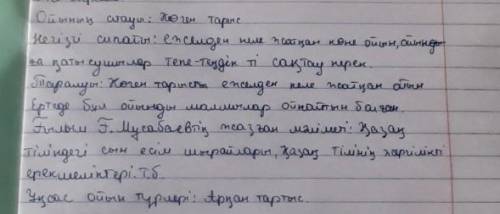 Ойынның атауы: Көген тарыс
Негізгі сипаты: ежелден келе жатқан көне ойын, ойынды
қатысушылар тепе-теңдік ті сақтау керек.
Таралуы: Көген тарыс ежелден келе жатқан ойын
Ертеде бұл ойынды малшылар ойнайтын болған.
Ғылыми Ғ. Мұсабаевтің жазған мәліметі: Қазақ
тіліндегі сын есім шырайлары, Қазақ тілінің жергілікті
ерекшеліктері. Т.б.
Ұқсас ойын түрлері: Арқан тартыс.